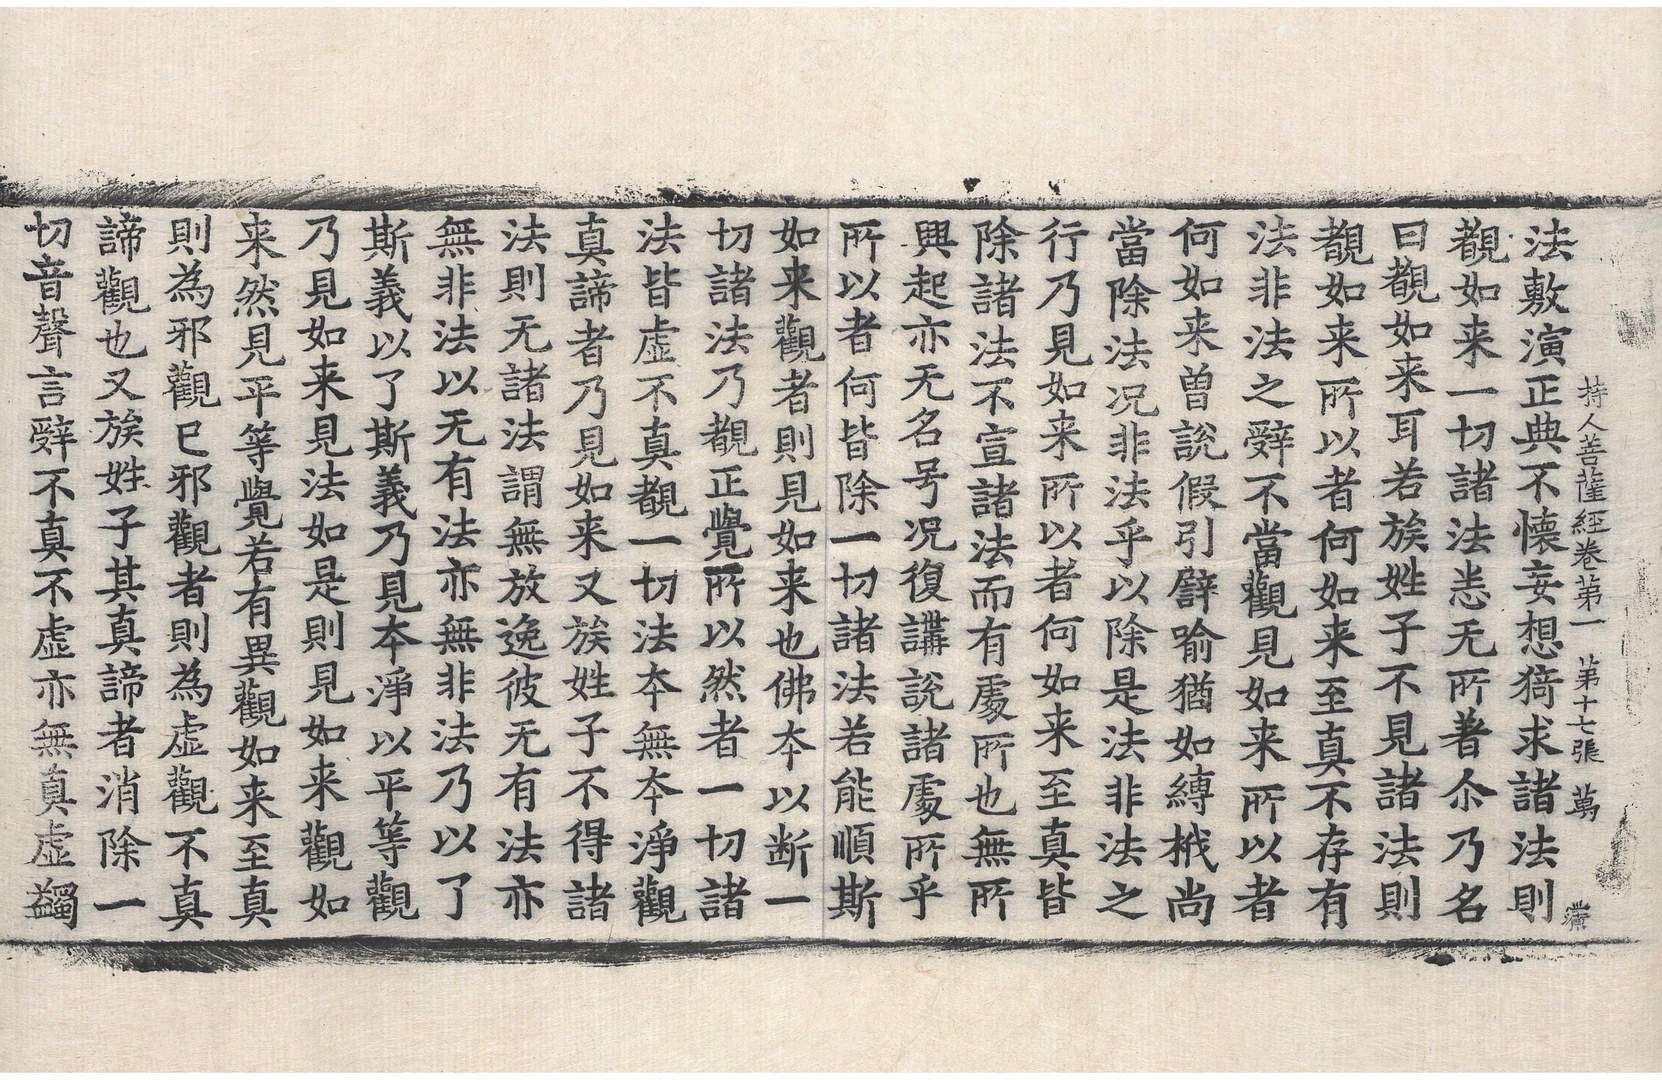 持人菩薩經卷第一　第十七張　萬
法敷演正典不懷妄想猗求諸法則
覩如来一切諸法恙无所著尒乃名
曰覩如来耳若族姓子不見諸法則
覩如来所以者何如来至真不存有
法非法之辤不當觀見如来所以者
何如来曽說假引譬喻猶如縛栰尚
當除法况非法乎以除是法非法之
行乃見如来所以者何如来至真皆
除諸法不宣諸法而有處所也無所
興起亦无名号况復講說諸處所乎
所以者何皆除一切諸法若能順斯
如来觀者則見如来也佛夲以断一
切諸法乃覩正覺所以然者一切諸
法皆虚不真覩一切法夲無夲淨觀
真諦者乃見如来又族姓子不得諸
法則无諸法謂無放逸彼无有法亦
無非法以无有法亦無非法乃以了
斯義以了斯義乃見夲淨以平等觀
乃見如来見法如是則見如来觀如
来然見平等覺若有異觀如来至真
則為邪觀已邪觀者則為虚觀不真
諦觀也又族姓子其真諦者消除一
切音聲言辤不真不虚亦無真虚蠲